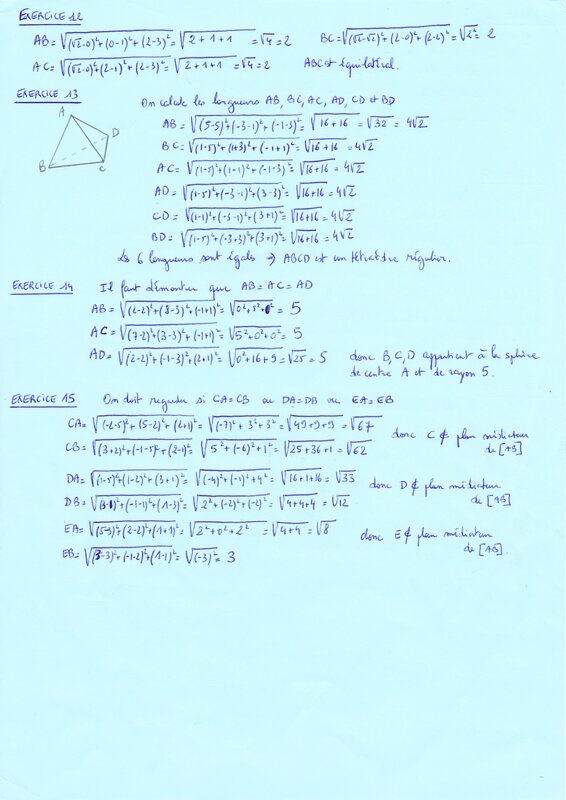 EXERCICE 12
AB = √((√2-0)²+(0-1)²+(2-3)²) = √(2+1+1) = √4 = 2 BC = √((√2-√2)²+(2-0)²+(2-2)²) = √2² = 2
AC = √((√2-0)²+(2-1)²+(2-3)²) = √(2+1+1) = √4 = 2 ABC est équilatéral.
EXERCICE 13
On calcule les longueurs AB, BC, AC, AD, CD et BD
A
D
B
C
AB = √((5-5)²+(-3-1)²+(-1-3)²) = √(16+16) = √32 = 4√2
BC = √((1-5)²+(1+3)²+(-1+1)²) = √(16+16) = 4√2
AC = √((1-5)²+(1-1)²+(-1-3)²) = √(16+16) = 4√2
AD = √((1-5)²+(-3-1)²+(3-3)²) = √(16+16) = 4√2
CD = √((1-1)²+(-3-1)²+(3+1)²) = √(16+16) = 4√2
BD = √((1-5)²+(-3+3)²+(3+1)²) = √(16+16) = 4√2
Les 6 longueurs sont égales → ABCD est un tétraèdre régulier.
EXERCICE 14 Il faut démontrer que AB = AC = AD
AB = √((2-2)²+(8-3)²+(-1+1)²) = √(0²+5²+0²) = 5
AC = √((7-2)²+(3-3)²+(-1+1)²) = √(5²+0²+0²) = 5
AD = √((2-2)²+(-1-3)²+(2+1)²) = √(0²+16+9) = √25 = 5 donc B, C, D appartient à la sphère
de centre A et de rayon 5.
EXERCICE 15 On doit regarder si CA = CB ou DA = DB ou EA = EB
CA = √((-2-5)²+(5-2)²+(2+1)²) = √((-7)²+3²+3²) = √(49+9+9) = √67
donc C ∉ plan médiateur
de [AB]
CB = √((3+2)²+(-1-5)²+(2-1)²) = √(5²+(-6)²+1²) = √(25+36+1) = √62
DA = √((1-5)²+(1-2)²+(3+1)²) = √((-4)²+(-1)²+4²) = √(16+1+16) = √33
donc D ∉ plan médiateur
de [AB]
DB = √((3-1)²+(-1-1)²+(1-3)²) = √(2²+(-2)²+(-2)²) = √(4+4+4) = √12
EA = √((5-3)²+(2-2)²+(1+1)²) = √(2²+0²+2²) = √(4+4) = √8
donc E ∉ plan médiateur
de [AB].
EB = √((3-3)²+(-1-2)²+(1-1)²) = √((-3)²) = 3